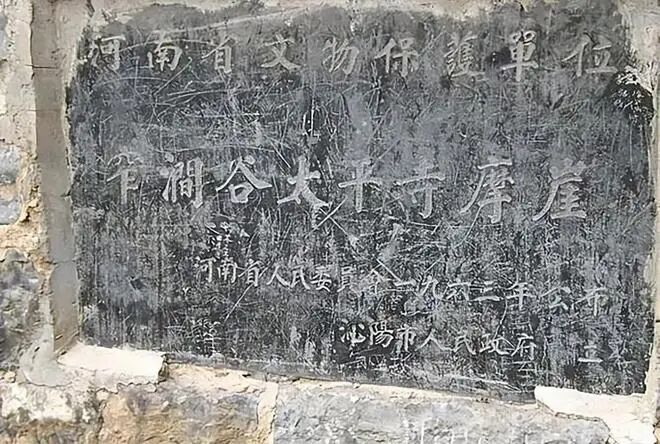 河南省文物保護單位
窄澗谷太平寺摩崖
河南省人民委員會一九六三年公布
沁陽市人民政府